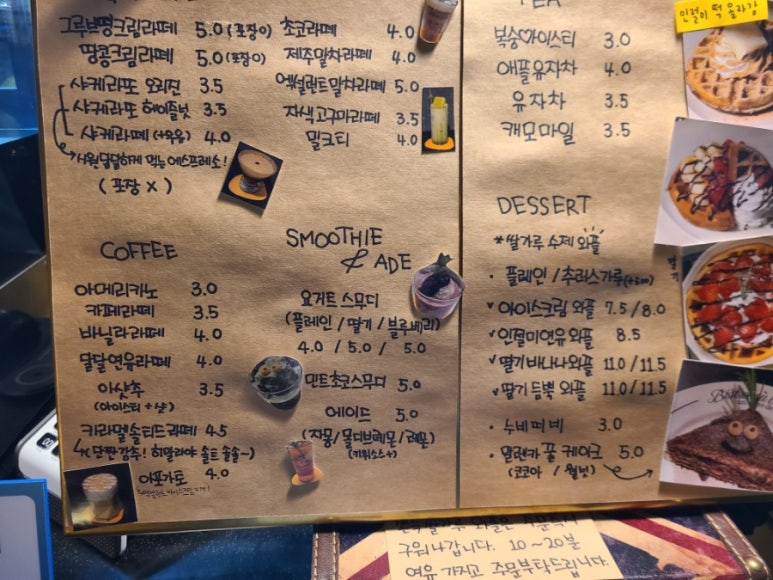 그루브명크림라떼 5.0 (포장이)
땅콩크림라떼 5.0 (포장이)
샤케라또 오리진 3.5
샤케라또 헤이즐넛 3.5
샤케라떼 (+우유) 4.0
시원달달하게 먹는 에스프레소!
(포장 X)
초코라떼 4.0
제주말차라떼 4.0
말차라떼 5.0
자색고구마라떼 3.5
밀크티 4.0
COFFEE
아메리카노 3.0
카페라떼 3.5
바닐라라떼 4.0
달달연유라떼 4.0
아샷추 3.5
(아이스티 + 샷)
카라멜솔티드라떼 4.5
단짠강추! 히말라야 솔트 솔솔~)
아포가토 4.0
SMOOTHIE
& ADE
요거트 스무디
(플레인 / 딸기 / 블루베리)
4.0 / 5.0 / 5.0
민트초코스무디 5.0
에이드 5.0
(자몽/블러디브레몬/레몬)
(키위소스+)
TEA
복숭♡아이스티 3.0
애플유자차 4.0
유자차 3.5
캐모마일 3.5
DESSERT
*쌀가루 수제 와플
· 플레인 / 추러스가루 (+500)
아이스크림 와플 7.5 / 8.0
인절미연유와플 8.5
딸기바나나와플 11.0 / 11.5
딸기듬뿍 와플 11.0 / 11.5
· 누네띠네 3.0
· 말렌카 꿀 케이크 5.0
(코코아 / 월넛)
인절미 떡 올라감
딸기
구워나갑니다. 10~20분
여유 가지고 주문부탁드립니다.